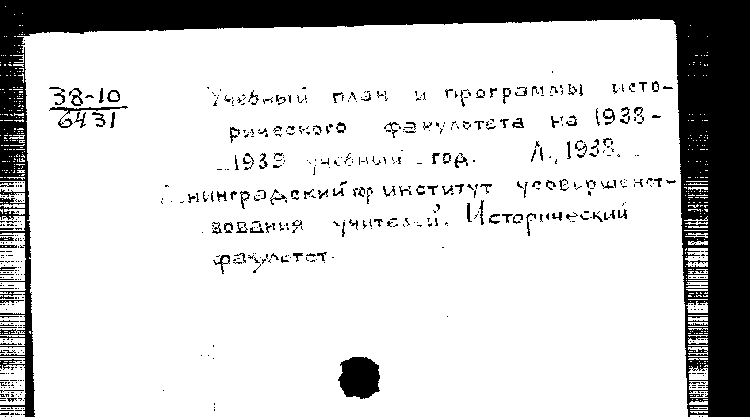 38-10
6431
Учебный план и программы исто-
рического факультета на 1938-
1939 учебный год. Л., 1938.
Ленинградский гор институт усовершенст-
вования учителей. Исторический
факультет.